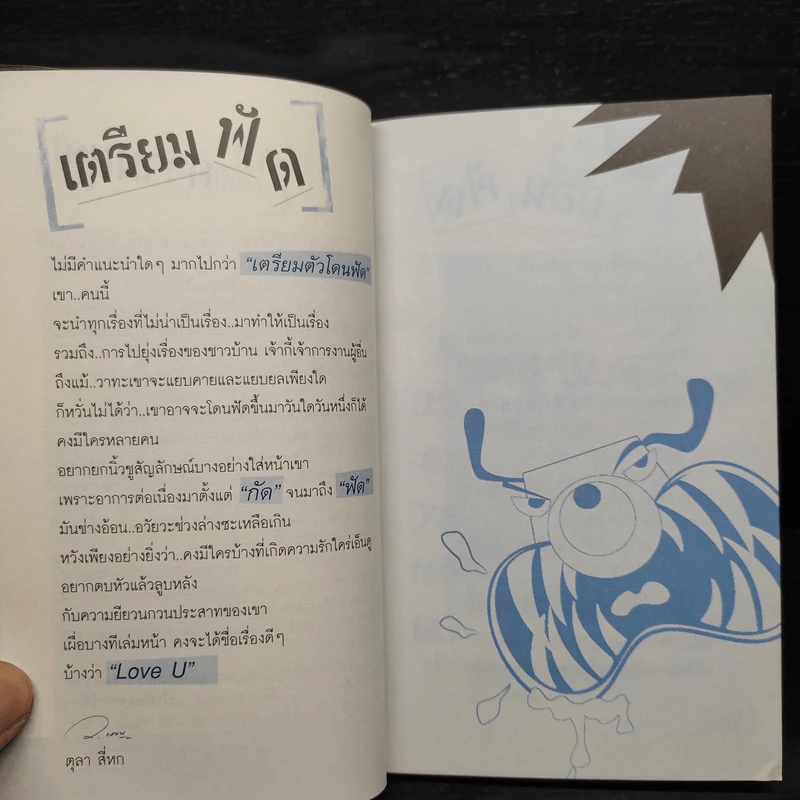 เตรียม ฟัด
ไม่มีคำแนะนำใดๆ มากไปกว่า "เตรียมตัวโดนฟัด"
เขา..คนนี้
จะนำทุกเรื่องที่ไม่น่าเป็นเรื่อง..มาทำให้เป็นเรื่อง
รวมถึง..การไปยุ่งเรื่องของชาวบ้าน เจ้ากี้เจ้าการงานผู้อื่น
ถึงแม้..วาทะเขาจะแยบคายและแยบยลเพียงใด
ก็หวั่นไม่ได้ว่า..เขาอาจจะโดนฟัดขึ้นมาวันใดวันหนึ่งก็ได้
คงมีใครหลายคน
อยากยกนิ้วชูสัญลักษณ์บางอย่างใส่หน้าเขา
เพราะอาการต่อเนื่องมาตั้งแต่ "กัด" จนมาถึง "ฟัด"
มันช่างอ้อน..อวัยวะช่วงล่างซะเหลือเกิน
หวังเพียงอย่างยิ่งว่า..คงมีใครบ้างที่เกิดความรักใคร่เอ็นดู
อยากตบหัวแล้วลูบหลัง
กับความยียวนกวนประสาทของเขา
เผื่อบางทีเล่มหน้า คงจะได้ชื่อเรื่องดีๆ
บ้างว่า "Love U"
ตุลา สี่หก